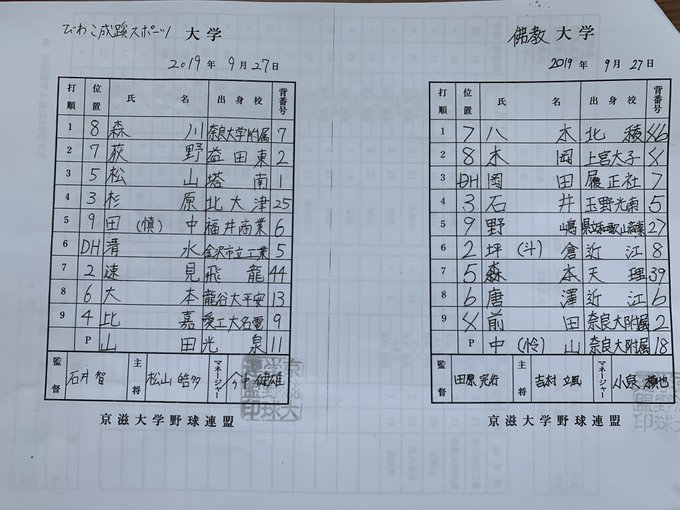 びわこ成蹊スポーツ 大学
2019年 9月27日
打順 位置 氏名 出身校 背番号
1 8 森川 奈良大学附属 7
2 7 荻野 益田東 2
3 5 松山 塔南 1
4 3 杉原 北大津 25
5 9 田(慎)中 福井商業 6
6 DH 清水 金沢市立工業 5
7 2 速見 飛龍 44
8 6 大本 龍谷大平安 13
9 4 比嘉 愛工大名電 9
P 山田 光泉 11
監督 石井智 主将 松山皓多 マネージャー 健雄
京滋大学野球連盟
佛教 大学
2019年 9月27日
打順 位置 氏名 出身校 背番号
1 7 八木 北稜 46
2 8 木岡 上宮太子 4
3 DH 岡田 履正社 7
4 3 石井 玉野光南 5
5 9 野嶋 県立和歌山商業 27
6 2 坪(斗)倉 近江 8
7 5 森本 天理 39
8 6 唐澤 近江 6
9 4 前田 奈良大附属 2
P 中(怜)山 奈良大附属 18
監督 田原完行 主将 吉村 マネージャー 小泉
京滋大学野球連盟